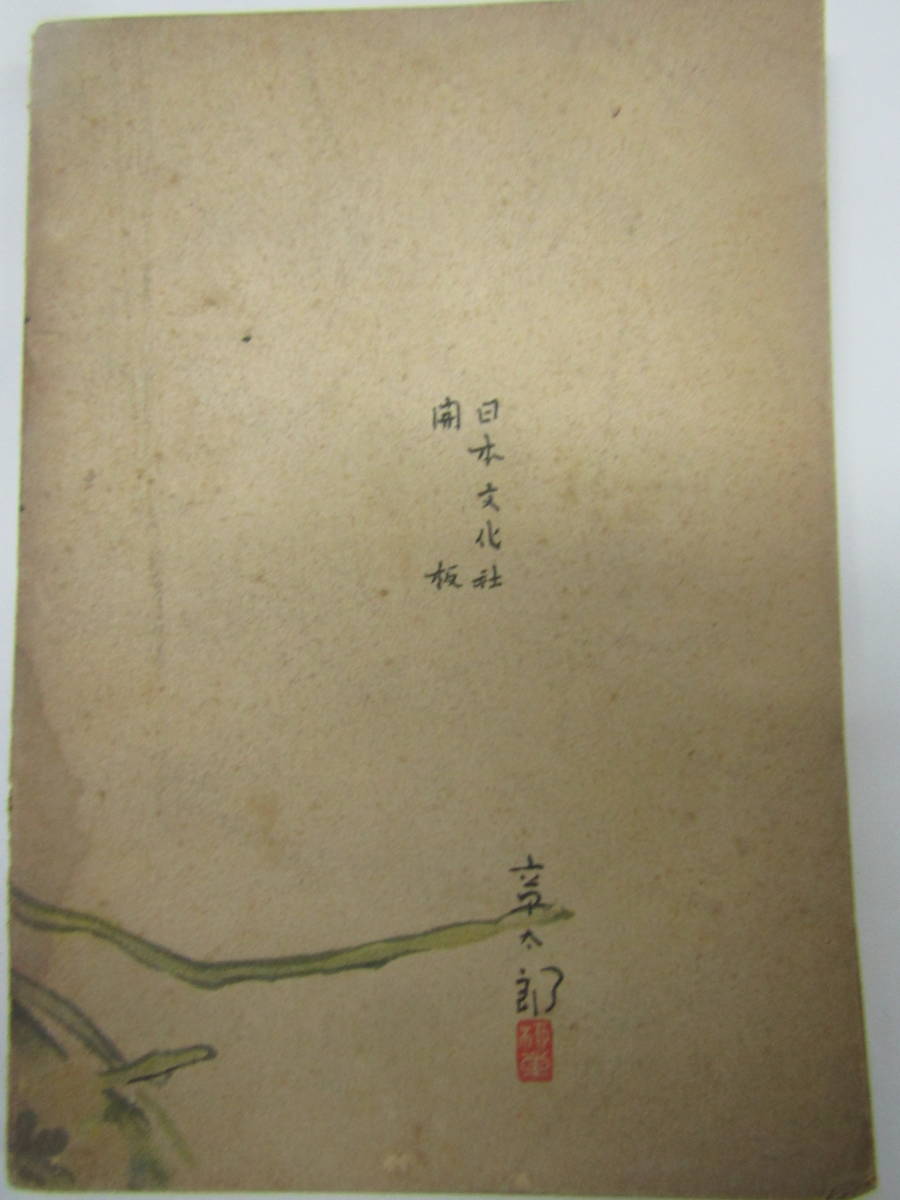 日本文化社
開板
章太郎